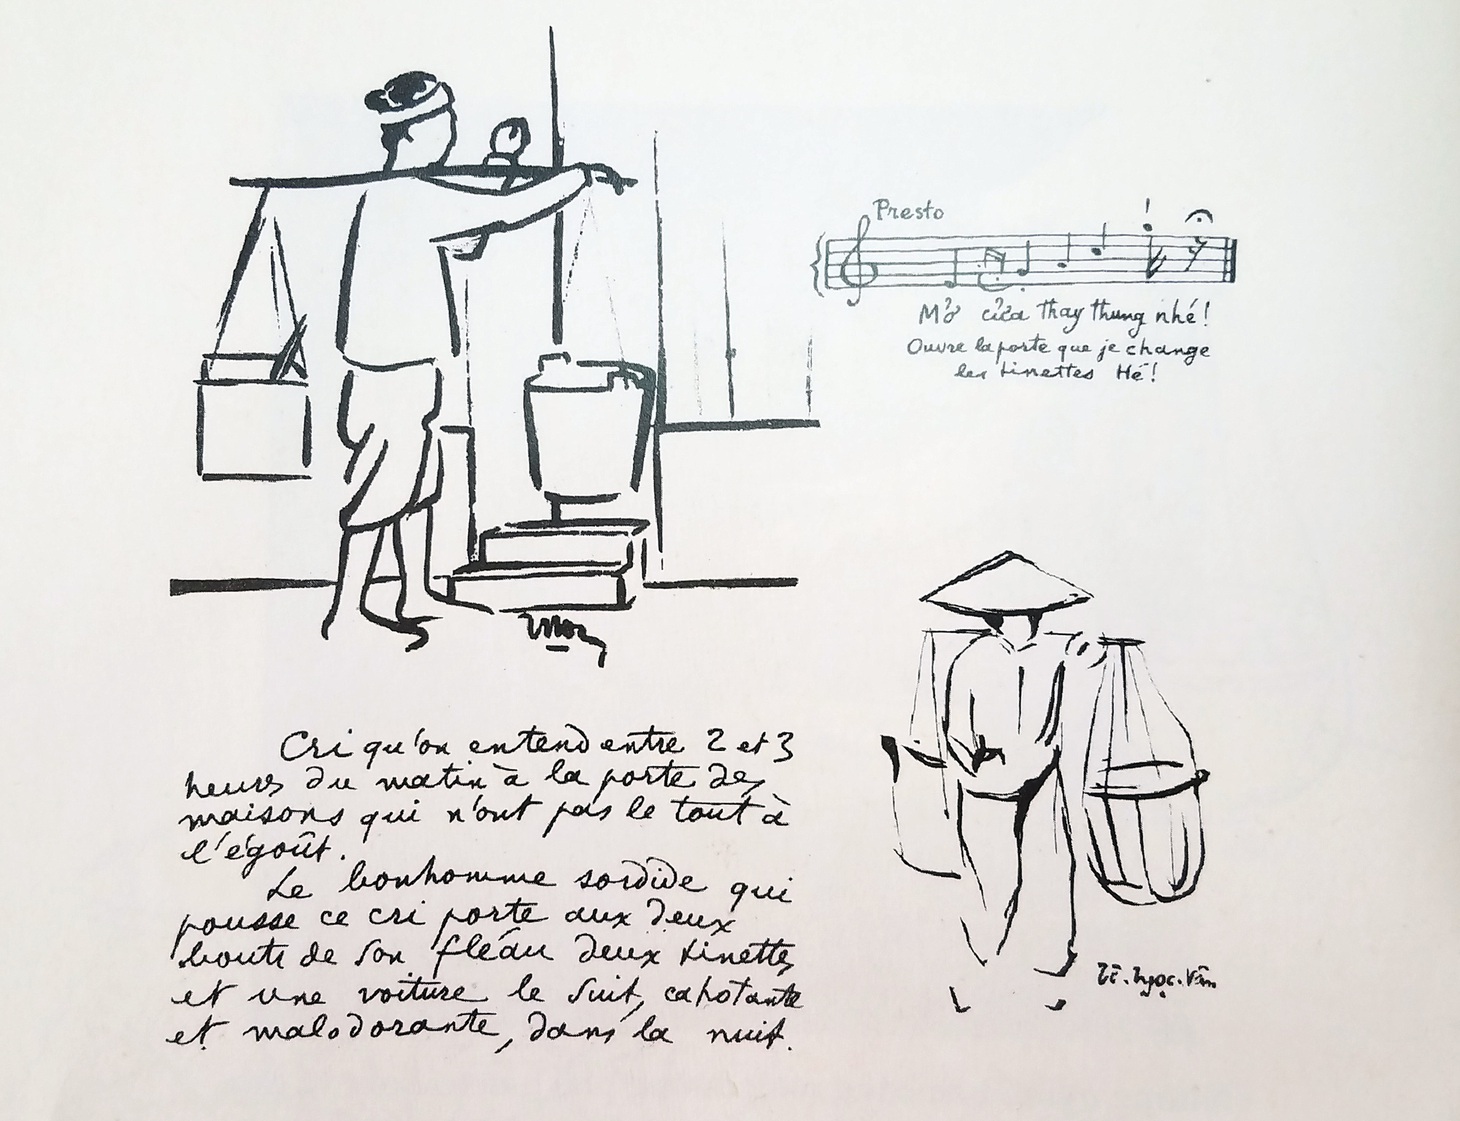 Presto
Mở cửa thay thùng nhé!
Ouvre la porte que je change
les tinettes Hé!
Cri qu'on entend entre 2 et 3
heures du matin à la porte des
maisons qui n'ont pas le tout à
l'égoût.
Le bonhomme sordide qui
pousse ce cri porte aux deux
bouts de son fléau deux tinettes
et une voiture le suit, cahotante
et malodorante, dans la nuit.